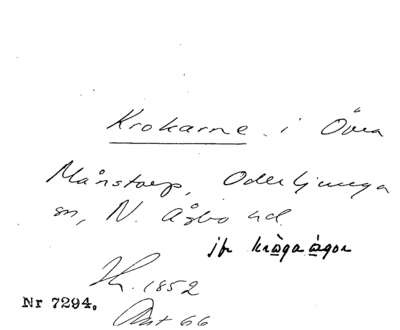 Krokarne i Övra
Månstorp, Oderljunga
sn, N. Åsbo hd.
jfr kråga ågor
1852
Nr 7294.
66